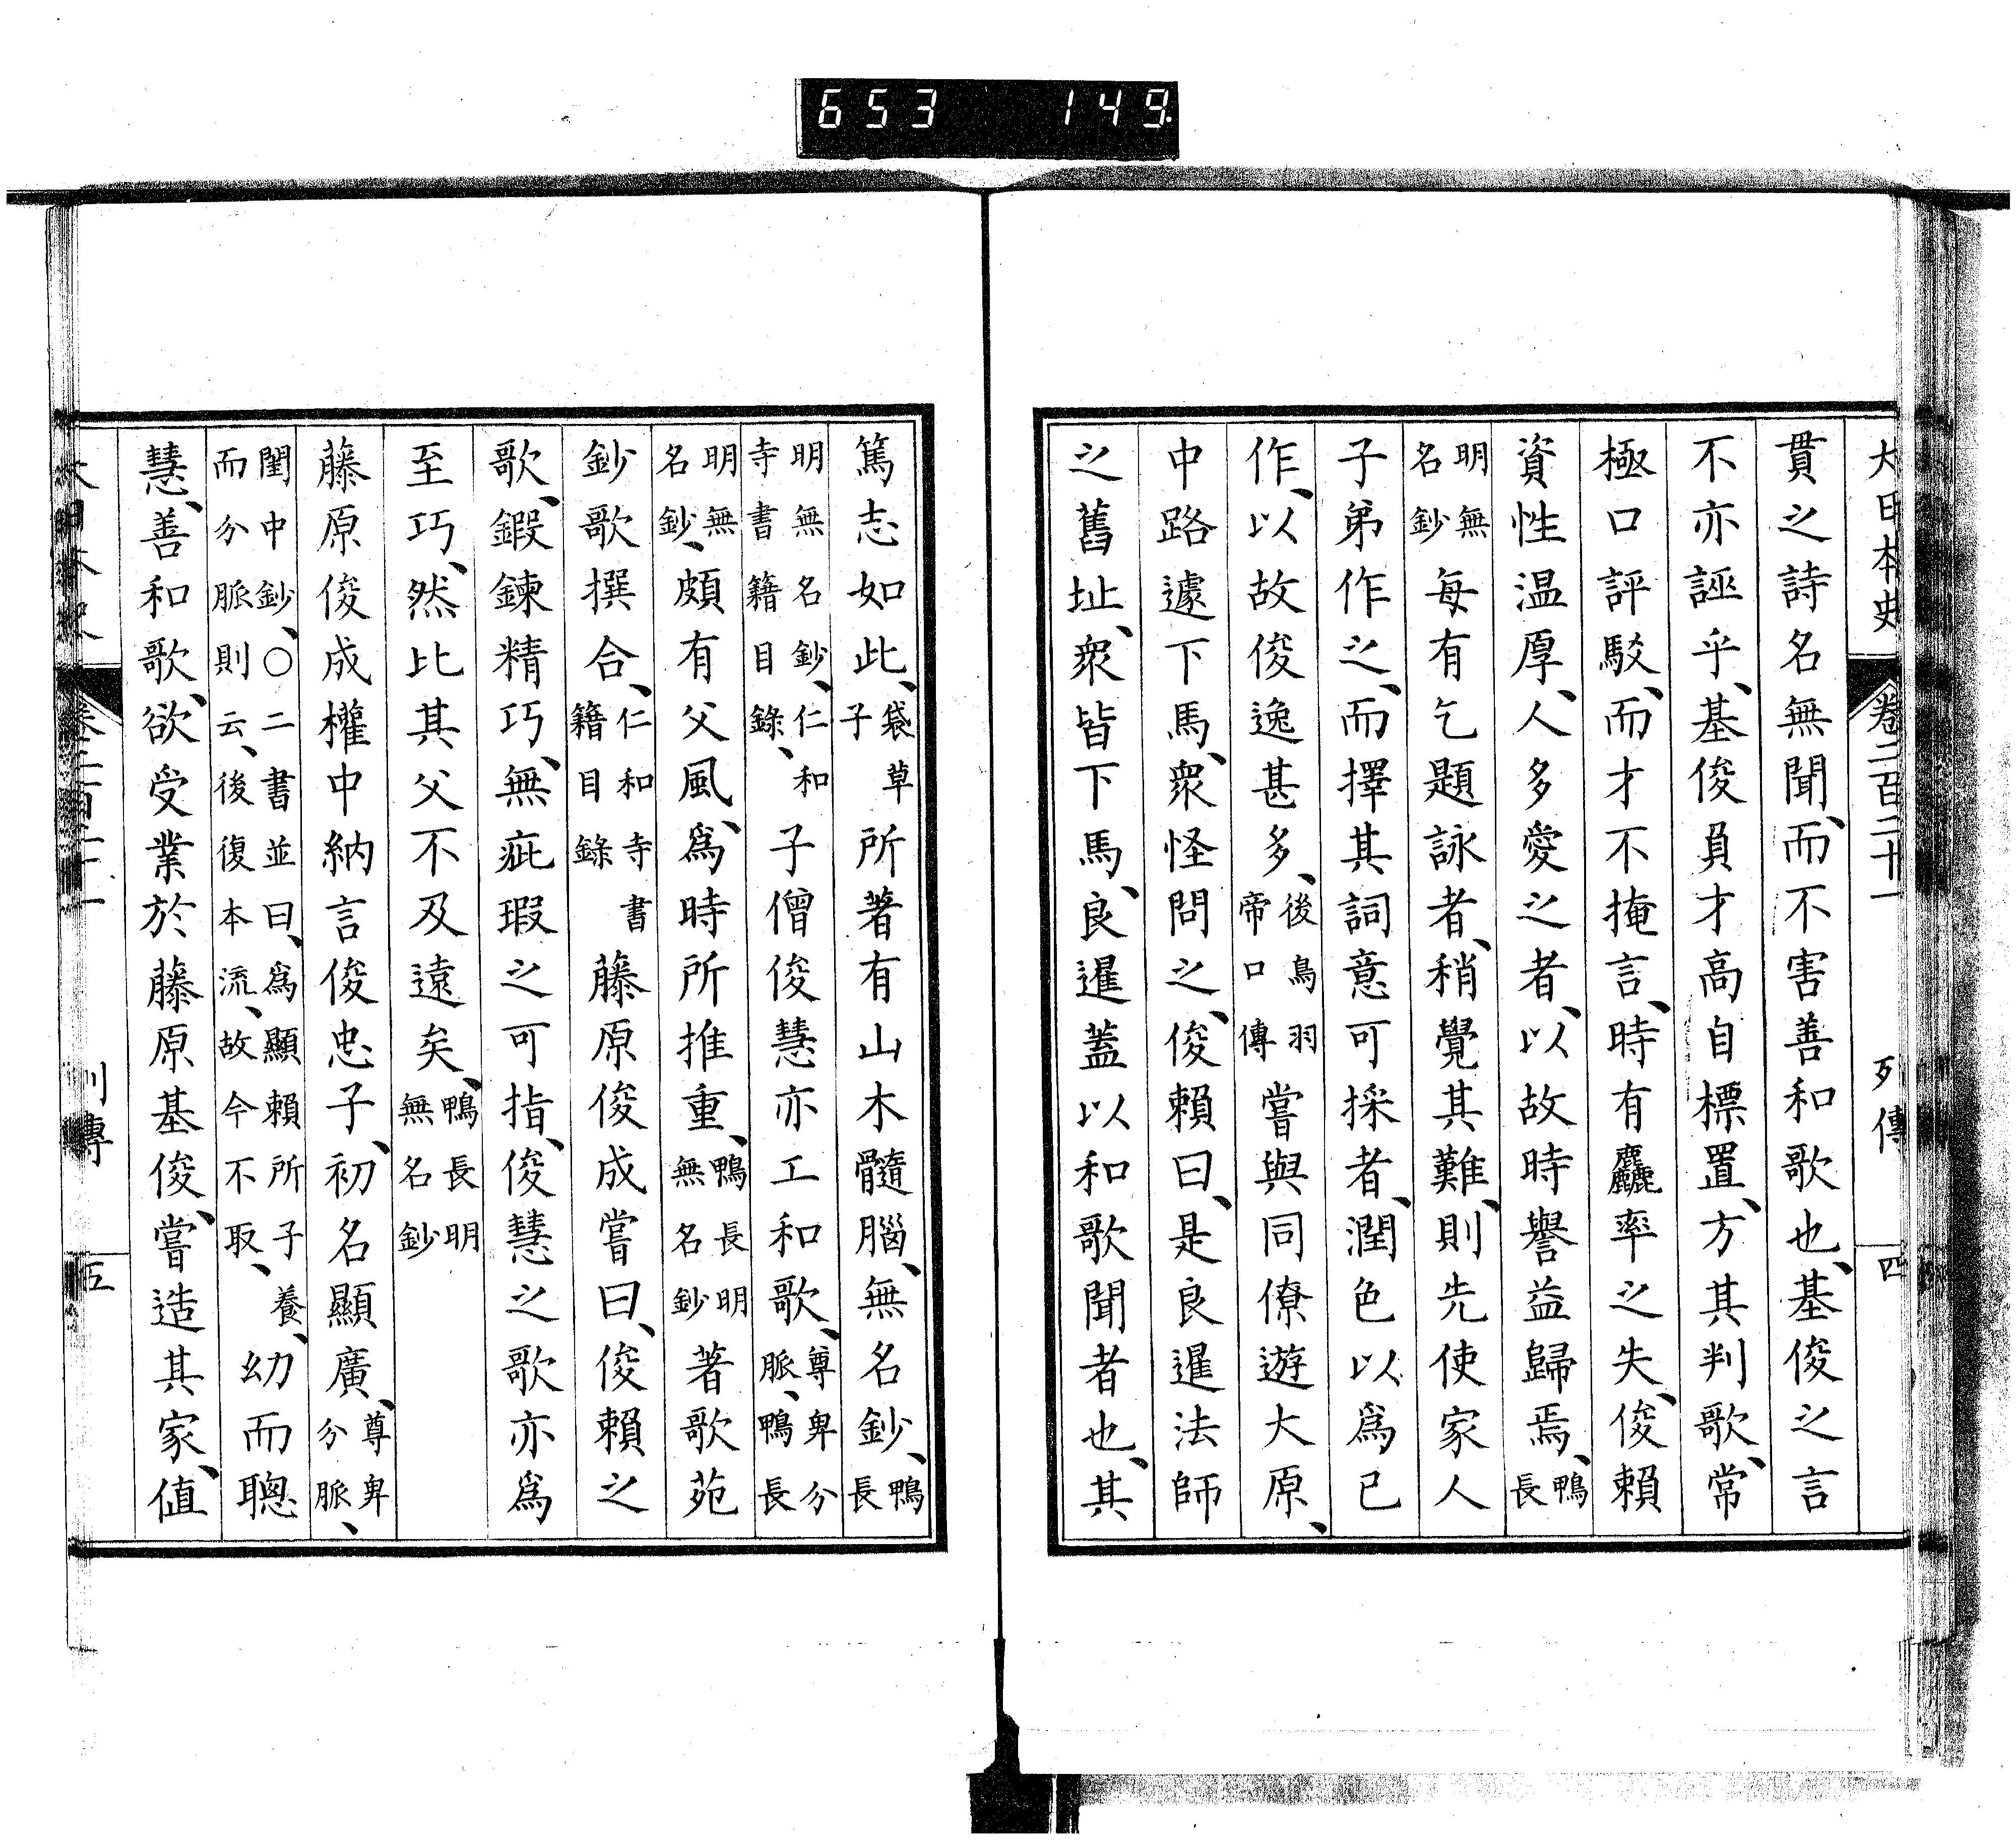 653 149
大日本史 卷二百二十一 列傳 四
貫之詩名無聞、而不害善和歌也、基俊之言
不亦誣乎、基俊負才高自標置、方其判歌、常
極口評駁、而才不掩言、時有麤率之失、俊賴
資性温厚、人多愛之者、以故時譽益歸焉、鴨長
明無名鈔 每有乞題詠者、稍覺其難、則先使家人
子弟作之、而擇其詞意可採者、潤色以爲已
作、以故俊逸甚多、後鳥羽帝口傳 嘗與同僚遊大原、
中路遽下馬、衆怪問之、俊賴曰、是良暹法師
之舊址、衆皆下馬、良暹蓋以和歌聞者也、其
篤志如此、袋草子 所著有山木髓腦、無名鈔、鴨長
明無名鈔、仁和寺書籍目錄、 子僧俊慧亦工和歌、尊卑分脈、鴨長
明無名鈔、 頗有父風、爲時所推重、鴨長明無名鈔 著歌苑
鈔歌撰合、仁和寺書籍目錄 藤原俊成嘗曰、俊賴之
歌、鍛鍊精巧、無疵瑕之可指、俊慧之歌亦爲
至巧、然比其父不及遠矣、鴨長明無名鈔
藤原俊成權中納言俊忠子、初名顯廣、尊卑分脈、
閨中鈔、○二書並曰、爲顯賴所子養、而分脈則云、後復本流、故今不取、 幼而聰
慧、善和歌、欲受業於藤原基俊、嘗造其家、値
大日本史 卷二百二十一 列傳 五